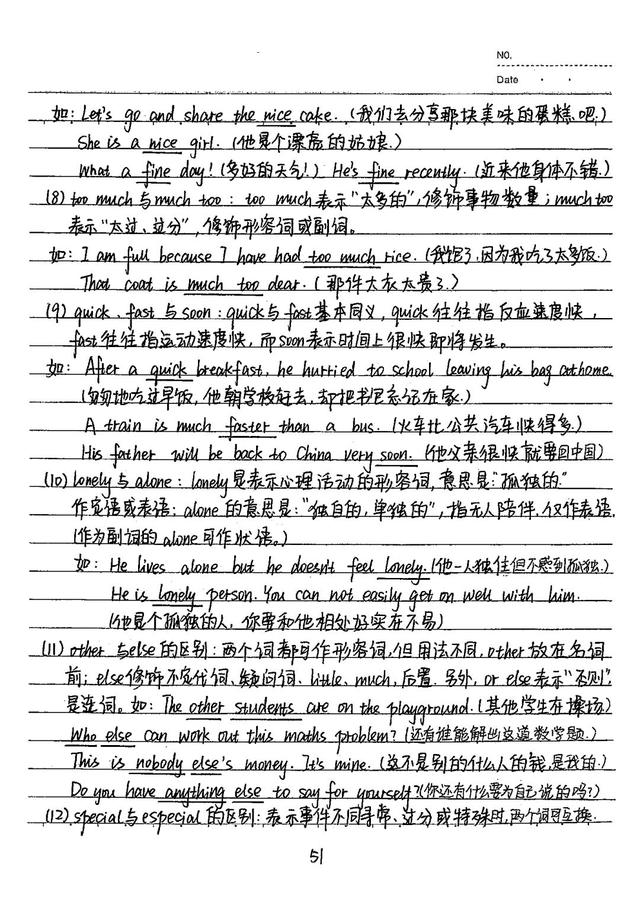 NO.
Date
如: Let's go and share the nice cake. (我们去分享那块美味的蛋糕吧.)
She is a nice girl. (他是个漂亮的姑娘.)
What a fine day! (多好的天气!) He's fine recently. (近来他身体不错.)
(8) too much 与 much too: too much 表示“太多的”, 修饰事物数量; much too
表示“太过、过分”, 修饰形容词或副词。
如: I am full because I have had too much rice. (我饱了, 因为我吃了太多饭.)
That coat is much too dear. (那件大衣太贵了.)
(9) quick、fast 与 soon: quick与fast基本同义, quick 往往指反应速度快,
fast往往指运动速度快, 而soon表示时间上很快即将发生。
如: After a quick breakfast, he hurried to school leaving his bag at home.
(匆匆地吃过早饭, 他朝学校赶去, 却把书包忘记在家.)
A train is much faster than a bus. (火车比公共汽车快得多.)
His father will be back to China very soon. (他父亲很快就要回中国)
(10) lonely 与 alone: lonely是表示心理活动的形容词, 意思是: “孤独的.”
作定语或表语; alone 的意思是: “独自的, 单独的”, 指无人陪伴. 仅作表语.
(作为副词的alone可作状语。)
如: He lives alone but he doesn't feel lonely. (他一人独住但不感到孤独.)
He is lonely person. You can not easily get on well with him.
(他是个孤独的人, 你要和他相处好实在不易)
(11) other 与else的区别: 两个词都可作形容词, 但用法不同, other 放在名词
前; else修饰不定代词、疑问词、little、much, 后置. 另外, or else 表示“否则”,
是连词。如: The other students are on the playground. (其他学生在操场)
Who else can work out this maths problem? (还有谁能解出这道数学题.)
This is nobody else's money. It's mine. (这不是别的什么人的钱, 是我的.)
Do you have anything else to say for yourself? (你还有什么要为自己说的吗?)
(12) special与especial的区别: 表示事件不同寻常、过分或特殊时, 两个词可互换.
51